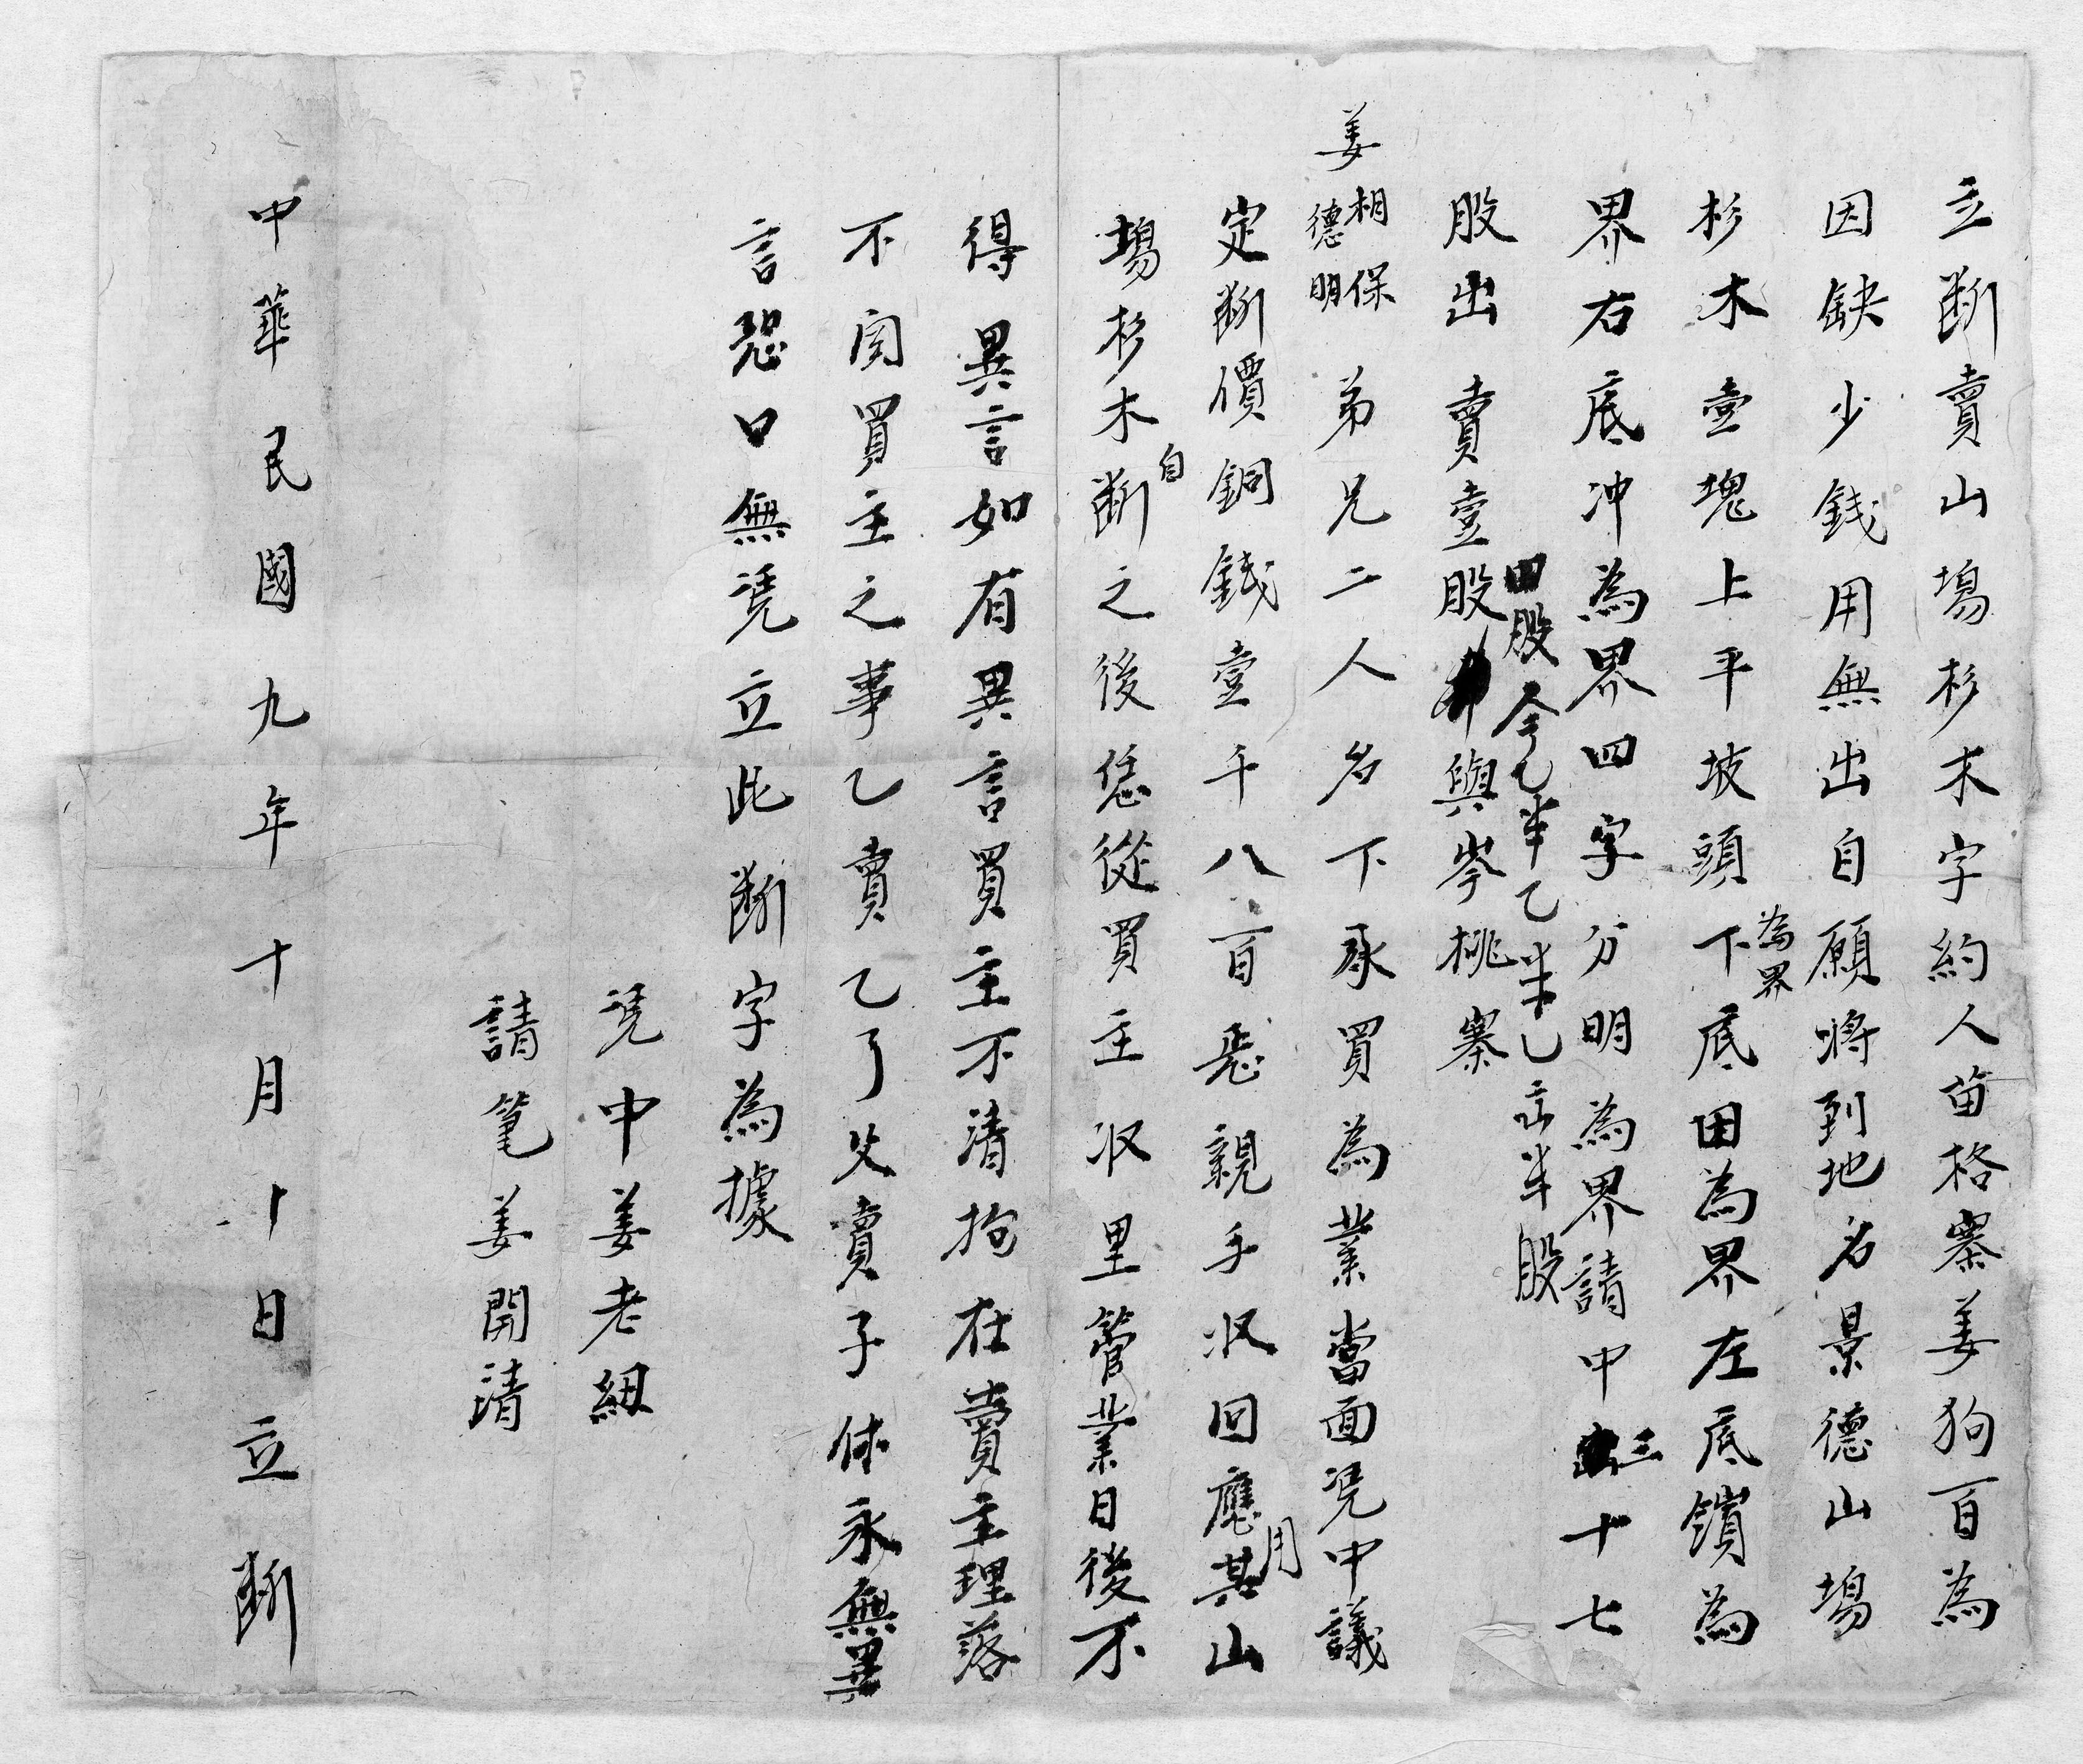 立断賣山塲杉木字約人苗格寨姜狗百為
因缺少錢用無出自願將到地名景德山塲
杉木壹塊上平坡頭為界下底田為界左底嶺為
界右底冲為界界四字分明為界請中三十七
股出賣壹股與岑桃寨
四股今乙半乙半乙半股
姜相保德明弟兄二人名下承買為業當面凭中議
定断價銅錢壹千八百悉親手收回應用其山
塲杉木自断之後恁從買主收里管業日後不
得異言如有異言買主不清抱在賣主理落
不関買主之事乙賣乙了父賣子休永無異
言恐口無凭立此断字為據
凭中姜老紐
請筆姜開清
中華民國九年十月十日立断